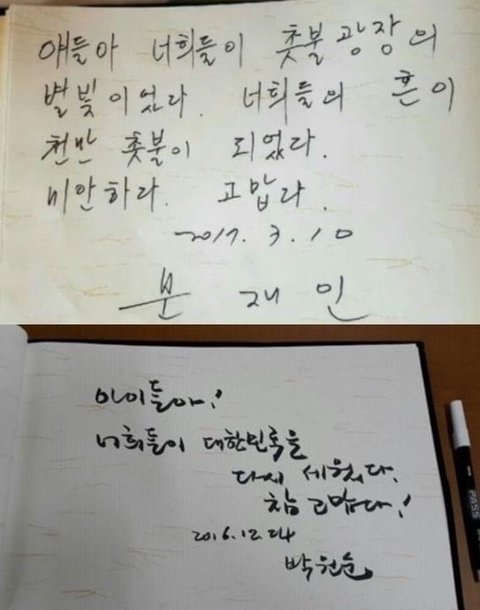 얘들아 너희들이 촛불광장의
별빛이었다. 너희들의 혼이
천만 촛불이 되었다.
미안하다. 고맙다.
2017. 3. 10
문재인
아이들아!
너희들이 대한민국을
다시 세웠다.
참 고맙다!
2016.12.24
박원순
PASS